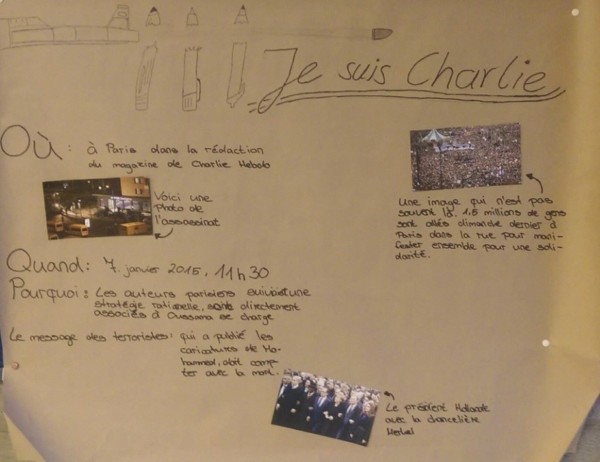 Je suis Charlie
Où: à Paris dans la rédaction
du magazine de Charlie Hebdo
Voici une
photo de
l'assassinat
Une image qui n'est pas
souvent là. 1,5 millions de gens
sont allés dimanche dernier à
Paris dans la rue pour mani-
fester ensemble pour une soli-
darité.
Quand: 7. janvier 2015, 11h30
Pourquoi: Les auteurs parisiens suivaient une
stratégie rationelle, sont directement
associés à Oussama se charge
Le message des terroristes: qui a publié les
caricatures de Mo-
hammed, doit comp-
ter avec la mort.
Le président Hollande
avec la chancelière
Merkel